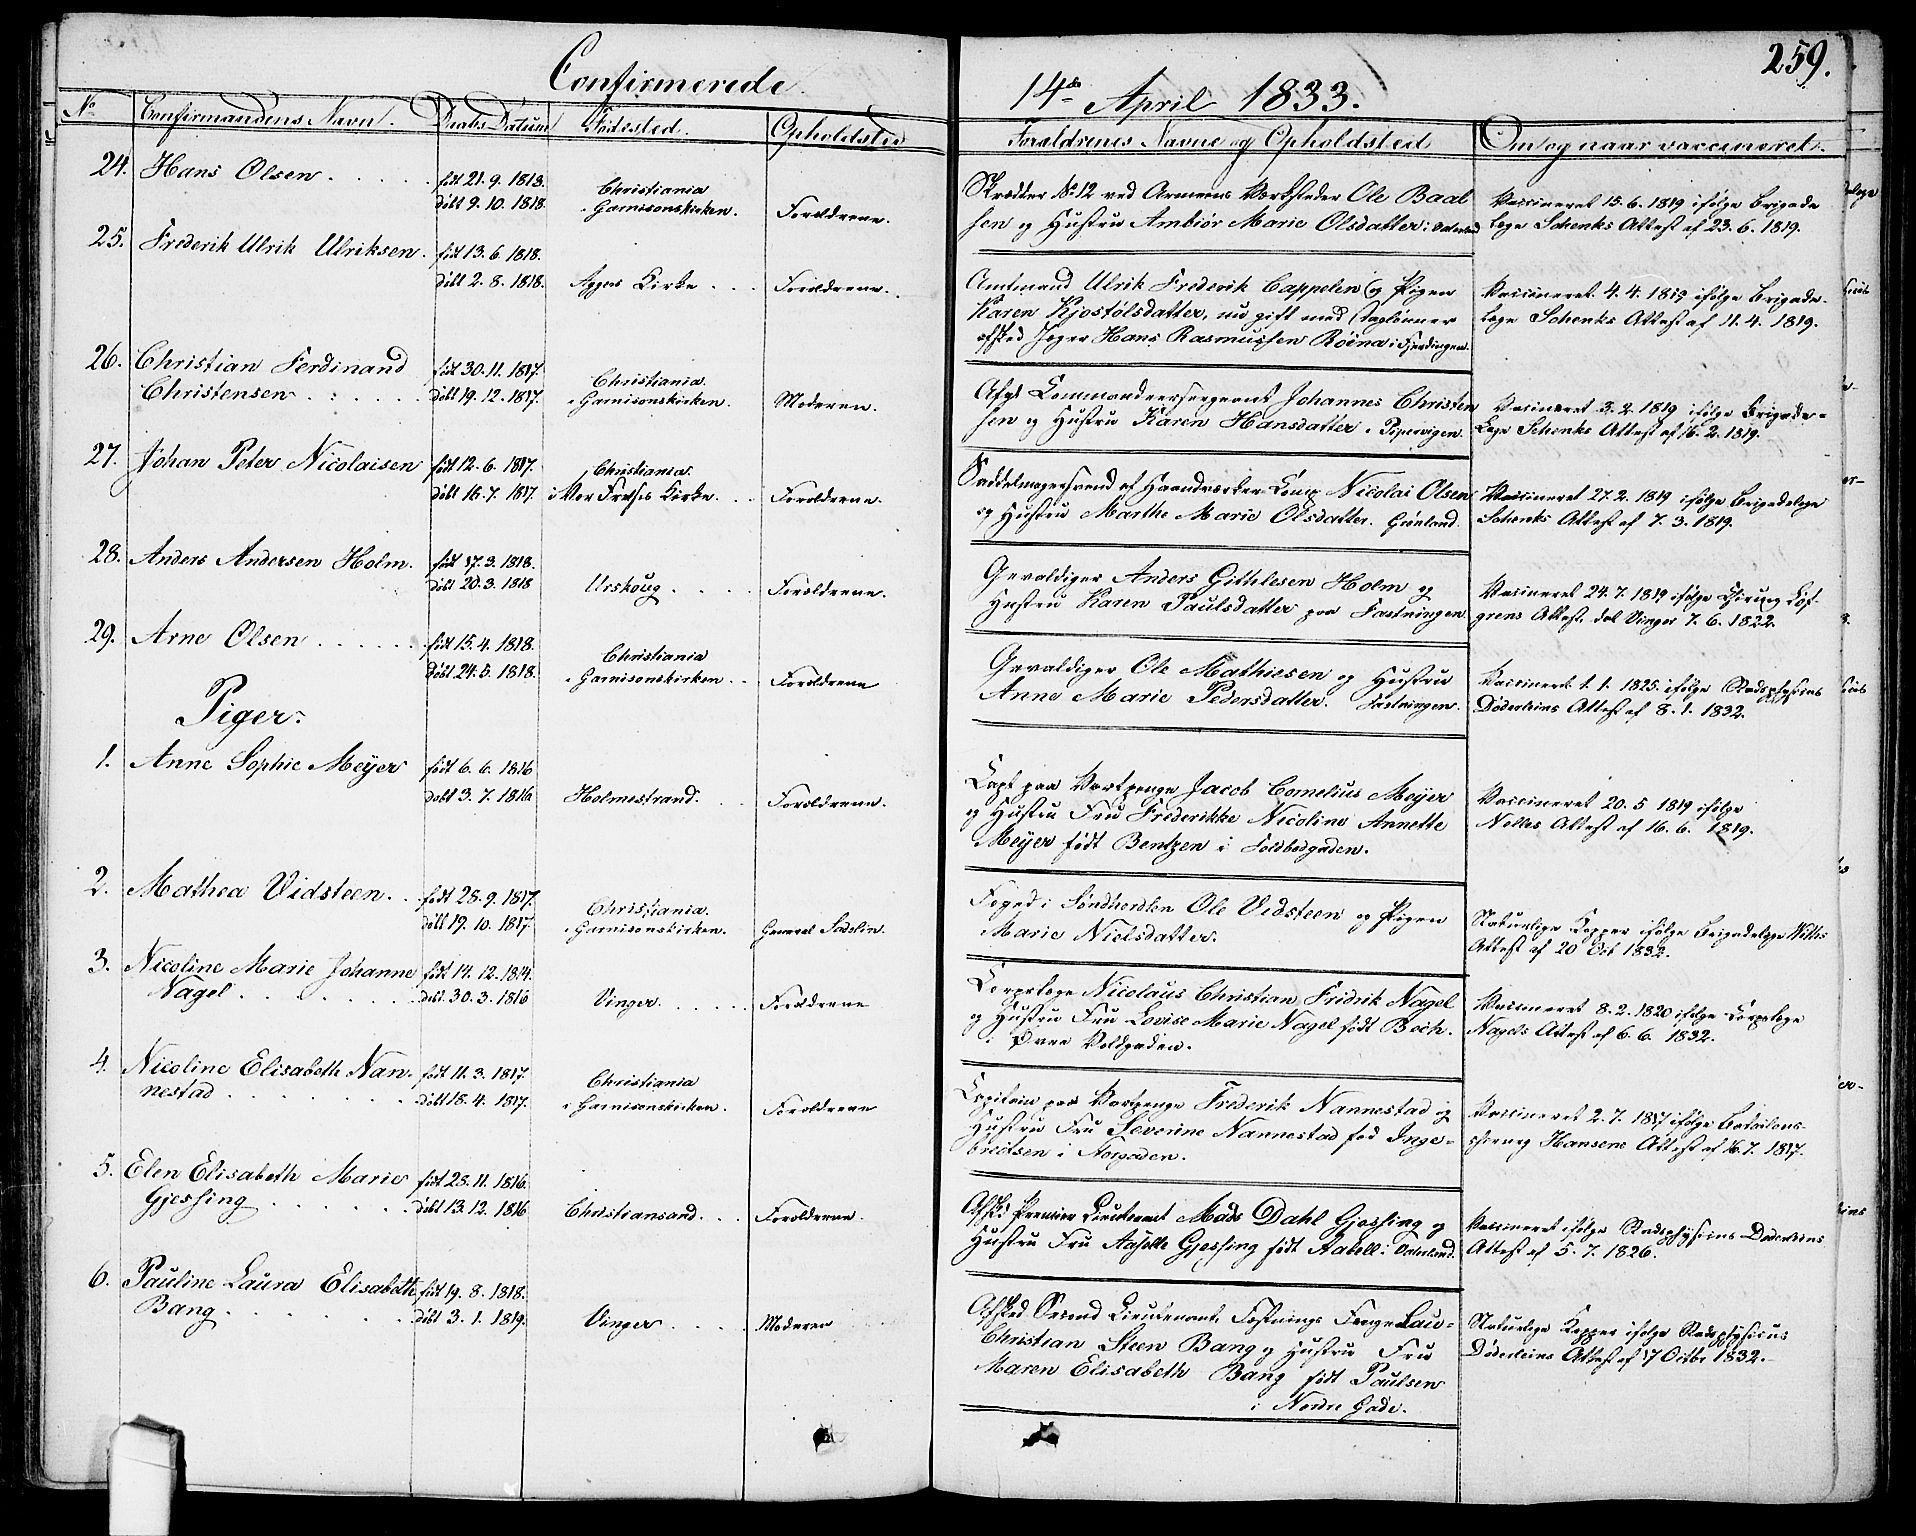 259.
Confirmerede
14de April 1833.
No. Confirmandens Navn. Daabs Datum Fødested. Opholdsted Forældrenes Navne og Opholdsted Om og naar vaccineret.
24. Hans Olsen . . . . .
født 21. 9. 1818.
døbt 9. 10. 1818.
Christiania
Garnisonskirken.
Forældrene.
Skrædder No 12 ved Armeens Værksteder Ole Baal
sen og Hustru Ambiør Marie Olsdatter i Vaterland
Vaccineret 15. 6. 1819 ifølge Brigade
læge Schenks Attest af 23. 6. 1819.
25. Frederik Ulrik Ulriksen.
født 13. 6. 1818.
døbt 2. 8. 1818.
Aggers Kirke . . .
Forældrene.
Amtmand Ulrik Frederik Cappelen og Pigen
Karen Kjostølsdatter, nu gift med Daglønner
afsked Jæger Hans Rasmussen Roéna i Fjerdingen.
Vaccineret 4. 4. 1819 ifølge Brigade-
læge Schenks Attest af 11. 4. 1819.
26. Christian Ferdinand
Christensen . . . . .
født 30. 11. 1817.
døbt 19. 12. 1817.
Christiania.
i Garnisonskirken.
Moderen.
Afgt Commandeersergeant Johannes Christen
sen og Hustru Karen Hansdatter i Pipervigen.
Vaccineret 3. 2. 1819 ifølge Brigade-
læge Schenks Attest af 16. 2. 1819.
27. Johan Peter Nicolaisen
født 12. 6. 1817.
døbt 16. 7. 1817.
Christiania.
i Vor Frelsers Kirke. . .
Forældrene.
Saddelmagersvend af Haandværker Comp Nicolai Olsen
og Hustru Marthe Marie Olsdatter. Grønland.
Vaccineret 27. 2. 1819 ifølge Brigadelæge
Schenks Attest af 7. 3. 1819.
28. Anders Andersen Holm.
født 17. 3. 1818.
døbt 20. 3. 1818
Urskoug . . . .
Forældrene.
Gevaldiger Anders Githlesen Holm og
Hustru Karen Paulsdatter paa Fæstningen
Vaccineret 24. 7. 1819 ifølge Chirurg Løf-
grens Attest dat Vinger 7. 6. 1822.
29. Arne Olsen . . . . .
født 15. 4. 1818.
døbt 24. 5. 1818.
Christiania
i Garnisonskirken . .
Forældrene
Gevaldiger Ole Mathiesen og Hustru
Anne Marie Pedersdatter. Fæstningen.
Vaccineret 1. 1. 1825. ifølge Stadsphysicus
Døderleins Attest af 8. 1. 1832.
Piger:
1. Anne Sophie Meyer
født 6. 6. 1816
døbt 3. 7. 1816.
Holmestrand. . .
Forældrene.
Capt paa Vartpenge Jacob Cornelius Meyer
og Hustru Fru Frederikke Nicoline Annette
Meyer født Bentzen i Toldbodgaden.
Vaccineret 20. 5 1819 ifølge
Nolles Attest af 16. 6. 1819.
2. Mathea Vidsteen. .
født 28. 9. 1817.
døbt 19. 10. 1817.
Christiania.
i Garnisonskirken.
General
Foged i Søndhordlen Ole Vidsteen og Pigen
Marie Nielsdatter.
Naturlige Kopper ifølge Brigadelæge
Attest af 20 Oct 1832.
3. Nicoline Marie Johanne
Nagel . . . . . .
født 14. 12. 1814.
døbt. 30. 3. 1816
Vinger. . . . .
Forældrene
Corpslæge Nicolaus Christian Fridrik Nagel
og Hustru Fru Lovise Marie Nagel født Boch.
i Øvre Voldgaden.
Vaccineret 8. 2. 1820 ifølge Corpslæge
Nagels Attest af 6. 6. 1832.
4. Nicoline Elisabeth Nan-
nestad . . . . . . .
født 11. 3. 1817.
døbt 18. 4. 1817.
Christiania
i Garnisonskirken.
Forældrene
Capitain paa Vartpenge Frederik Nannestad og
Hustru Fru Severine Nannestad fød Inge-
bretsen i
Vaccineret 2. 7. 1817 ifølge Batailons-
chirurg Hansens Attest af 16. 7. 1817.
5. Elen Elisabeth Marie
Gjessing . . . . . .
født 23. 11. 1816.
døbt 13. 12. 1816
Christiansand. . . .
Forældrene.
Afsked Premier Lieutenant Mads Dahl Gjessing og
Hustru Fru Gjessing født Aabell i Vaterland.
Vaccineret ifølge Stadsphysicus Døderleins
Attest af 5. 7. 1826.
6. Pauline Laura Elisabeth
Bang . . . . . .
født 19. 8. 1818.
døbt 3. 1. 1819.
Vinger . . . .
Moderen
Afsked Second Lieutenant, Fæstnings Fange Lau-
Christian Steen Bang og Hustru Fru
Maren Elisabeth Bang født Paulsen
i Nordre Gade.
Naturlige Kopper ifølge Stadsphysicus
Døderleins Attest af 17 Octbr 1832.